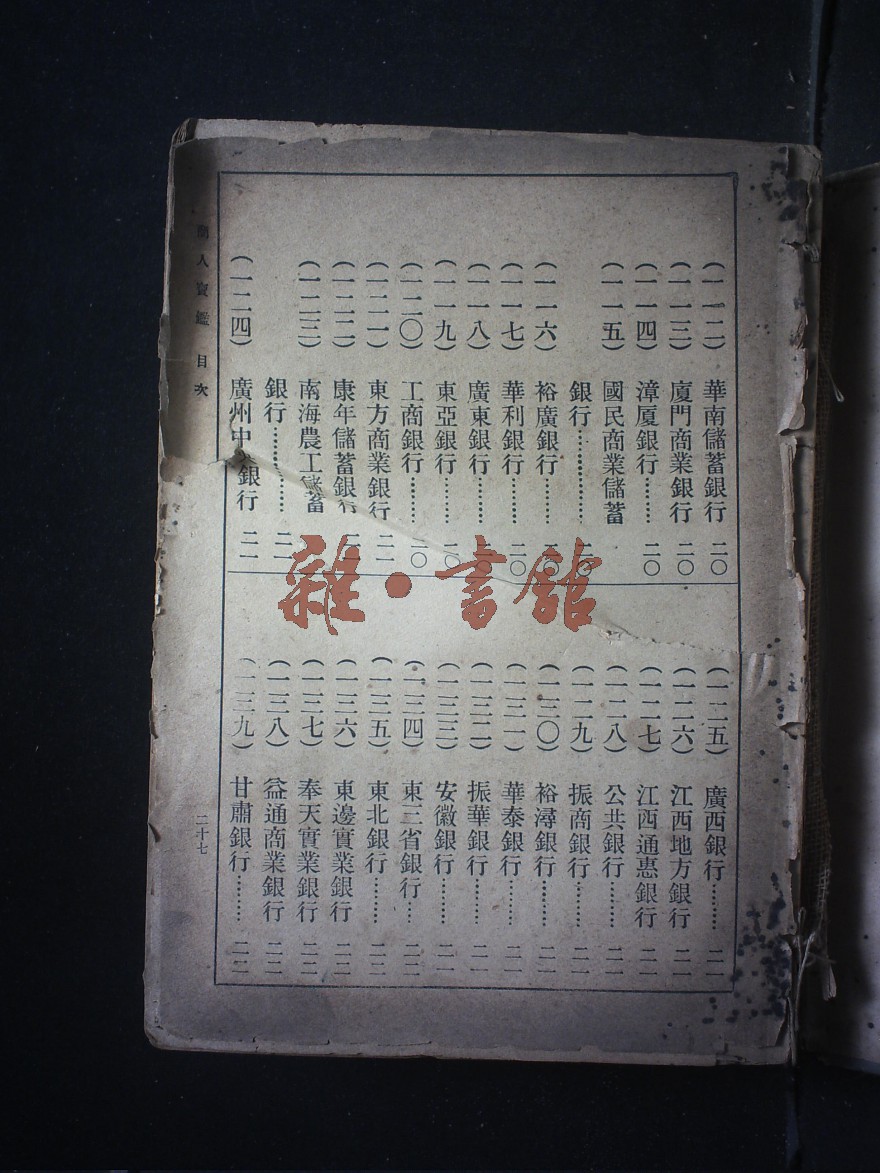 商人寶鑑 目次
(一一二) 華南儲蓄銀行 二〇
(一一三) 廈門商業銀行 二〇
(一一四) 漳厦銀行……… 二〇
(一一五) 國民商業儲蓄
銀行……………
(一一六) 裕廣銀行………
(一一七) 華利銀行……… 二〇
(一一八) 廣東銀行………
(一一九) 東亞銀行……… 二〇
(一二〇) 工商銀行……… 二〇
(一二一) 東方商業銀行 二一
(一二二) 康年儲蓄銀行 二一
(一二三) 南海農工儲蓄
銀行…………… 二一
(一二四) 廣州中 銀行 二一
(一二五) 廣西銀行……… 二一
(一二六) 江西地方銀行 二一
(一二七) 江西通惠銀行 二一
(一二八) 公共銀行……… 二一
(一二九) 振商銀行……… 二一
(一三〇) 裕潯銀行……… 二一
(一三一) 華泰銀行……… 二一
(一三二) 振華銀行……… 二一
(一三三) 安徽銀行……… 二一
(一三四) 東三省銀行…… 二二
(一三五) 東北銀行……… 二二
(一三六) 東邊實業銀行 二二
(一三七) 奉天實業銀行 二二
(一三八) 益通商業銀行 二二
(一三九) 甘肅銀行……… 二二
二十七
雜·書館